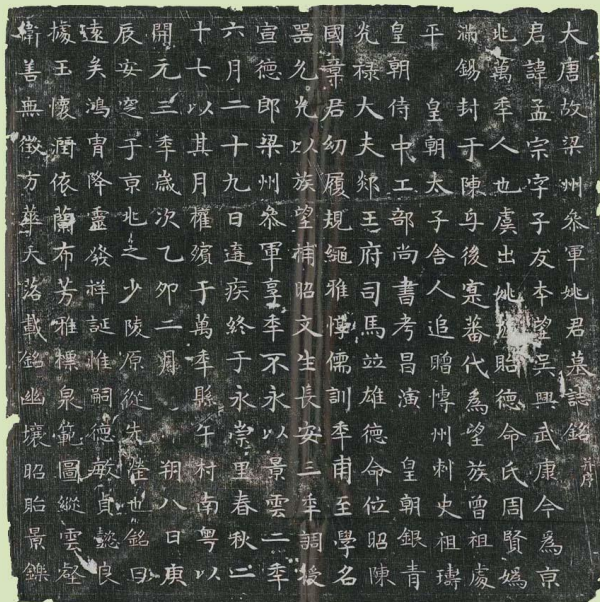 大唐故梁州叅軍姚君墓誌銘 并序
君諱孟宗字子友本望吳興武康今為京
兆萬秊人也虞出姚貽德命氏周賢媯
滿錫封于陳身後寔蕃代為望族曾祖處
平 皇朝太子舍人追贈博州刺史祖璹
皇朝侍中工部尚書考昌演 皇朝銀青
光祿大夫郯王府司馬竝雄德命位昭陳
國章君幼履規繩雅博儒訓秊甫至學名
器允光以族望補昭文生長安三秊調授
宣德郎梁州叅軍享秊不永以景雲二秊
六月二十九日遘疾終于永崇里春秋二
十七以其月權殯于萬秊縣午村南粵以
開元三秊歲次乙卯二月 朔八日庚
辰安窆于京兆之少陵原從先塋也銘曰
遠矣鴻胄降靈發祥誕惟嗣德敏貞懿良
據玉懷潤依蘭布芳雅標泉範圖縱雲壑
衛善無徵方華夭落載銘幽壤昭貽景鑠